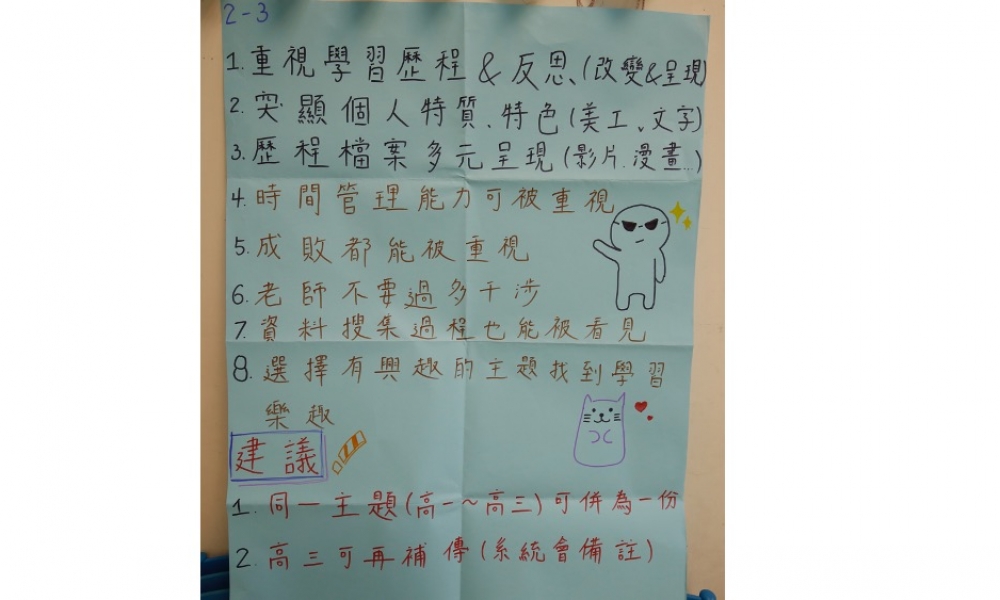 2-3
1. 重視學習歷程 & 反思、(改變&呈現)
2. 突顯個人特質、特色(美工、文字)
3. 歷程檔案多元呈現(影片、漫畫...)
4. 時間管理能力可被重視
5. 成敗都能被重視
6. 老師不要過多干涉
7. 資料搜集過程也能被看見
8. 選擇有興趣的主題找到學習
樂趣
建議
1. 同一主題(高一~高三)可併為一份
2. 高三可再補傳(系統會備註)